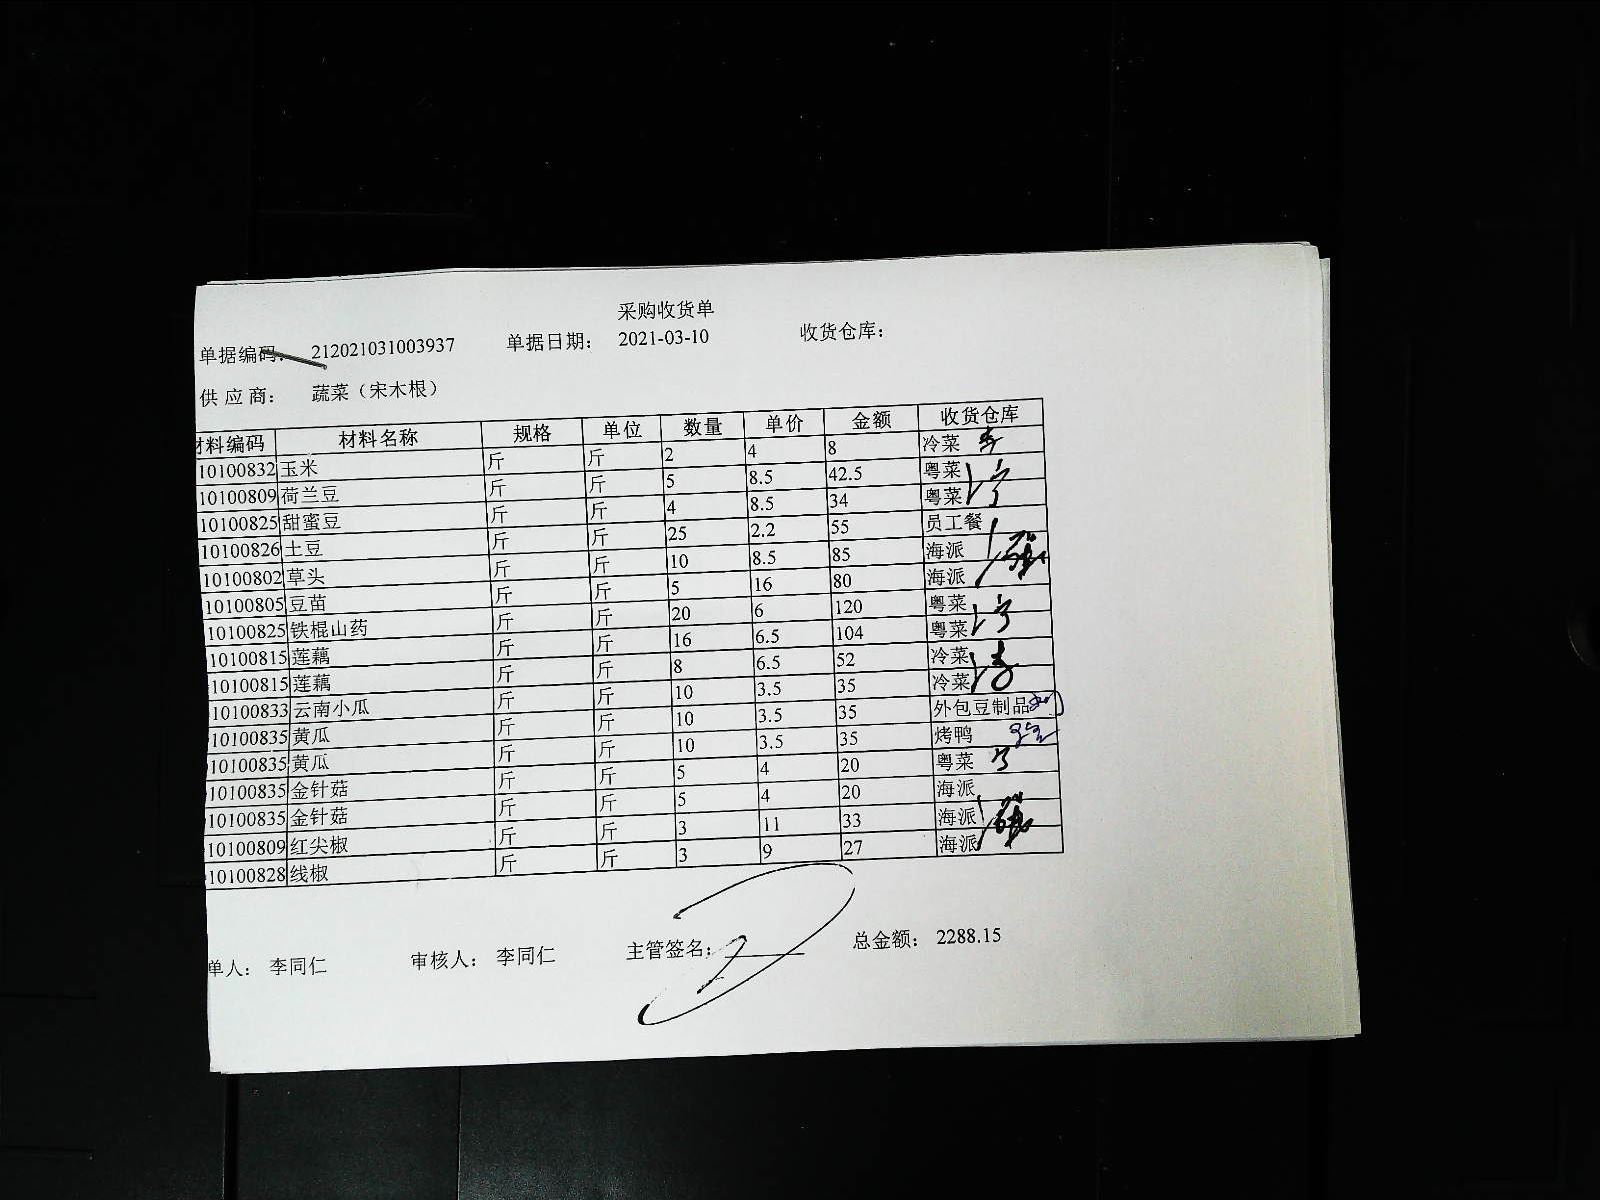 采购收货单
单据编码： 212021031003937 单据日期： 2021-03-10 收货仓库：
供应商： 蔬菜（宋木根）
材料编码 材料名称 规格 单位 数量 单价 金额 收货仓库
10100832 玉米 斤 斤 2 4 8 冷菜
10100809 荷兰豆 斤 斤 5 8.5 42.5 粤菜
10100825 甜蜜豆 斤 斤 4 8.5 34 粤菜
10100826 土豆 斤 斤 25 2.2 55 员工餐
10100802 草头 斤 斤 10 8.5 85 海派
10100805 豆苗 斤 斤 5 16 80 海派
10100825 铁棍山药 斤 斤 20 6 120 粤菜
10100815 莲藕 斤 斤 16 6.5 104 粤菜
10100815 莲藕 斤 斤 8 6.5 52 冷菜
10100833 云南小瓜 斤 斤 10 3.5 35 冷菜
10100835 黄瓜 斤 斤 10 3.5 35 外包豆制品
10100835 黄瓜 斤 斤 10 3.5 35 烤鸭
10100835 金针菇 斤 斤 5 4 20 粤菜
10100835 金针菇 斤 斤 5 4 20 海派
10100809 红尖椒 斤 斤 3 11 33 海派
10100828 线椒 斤 斤 3 9 27 海派
单人： 李同仁 审核人： 李同仁 主管签名： 总金额： 2288.15